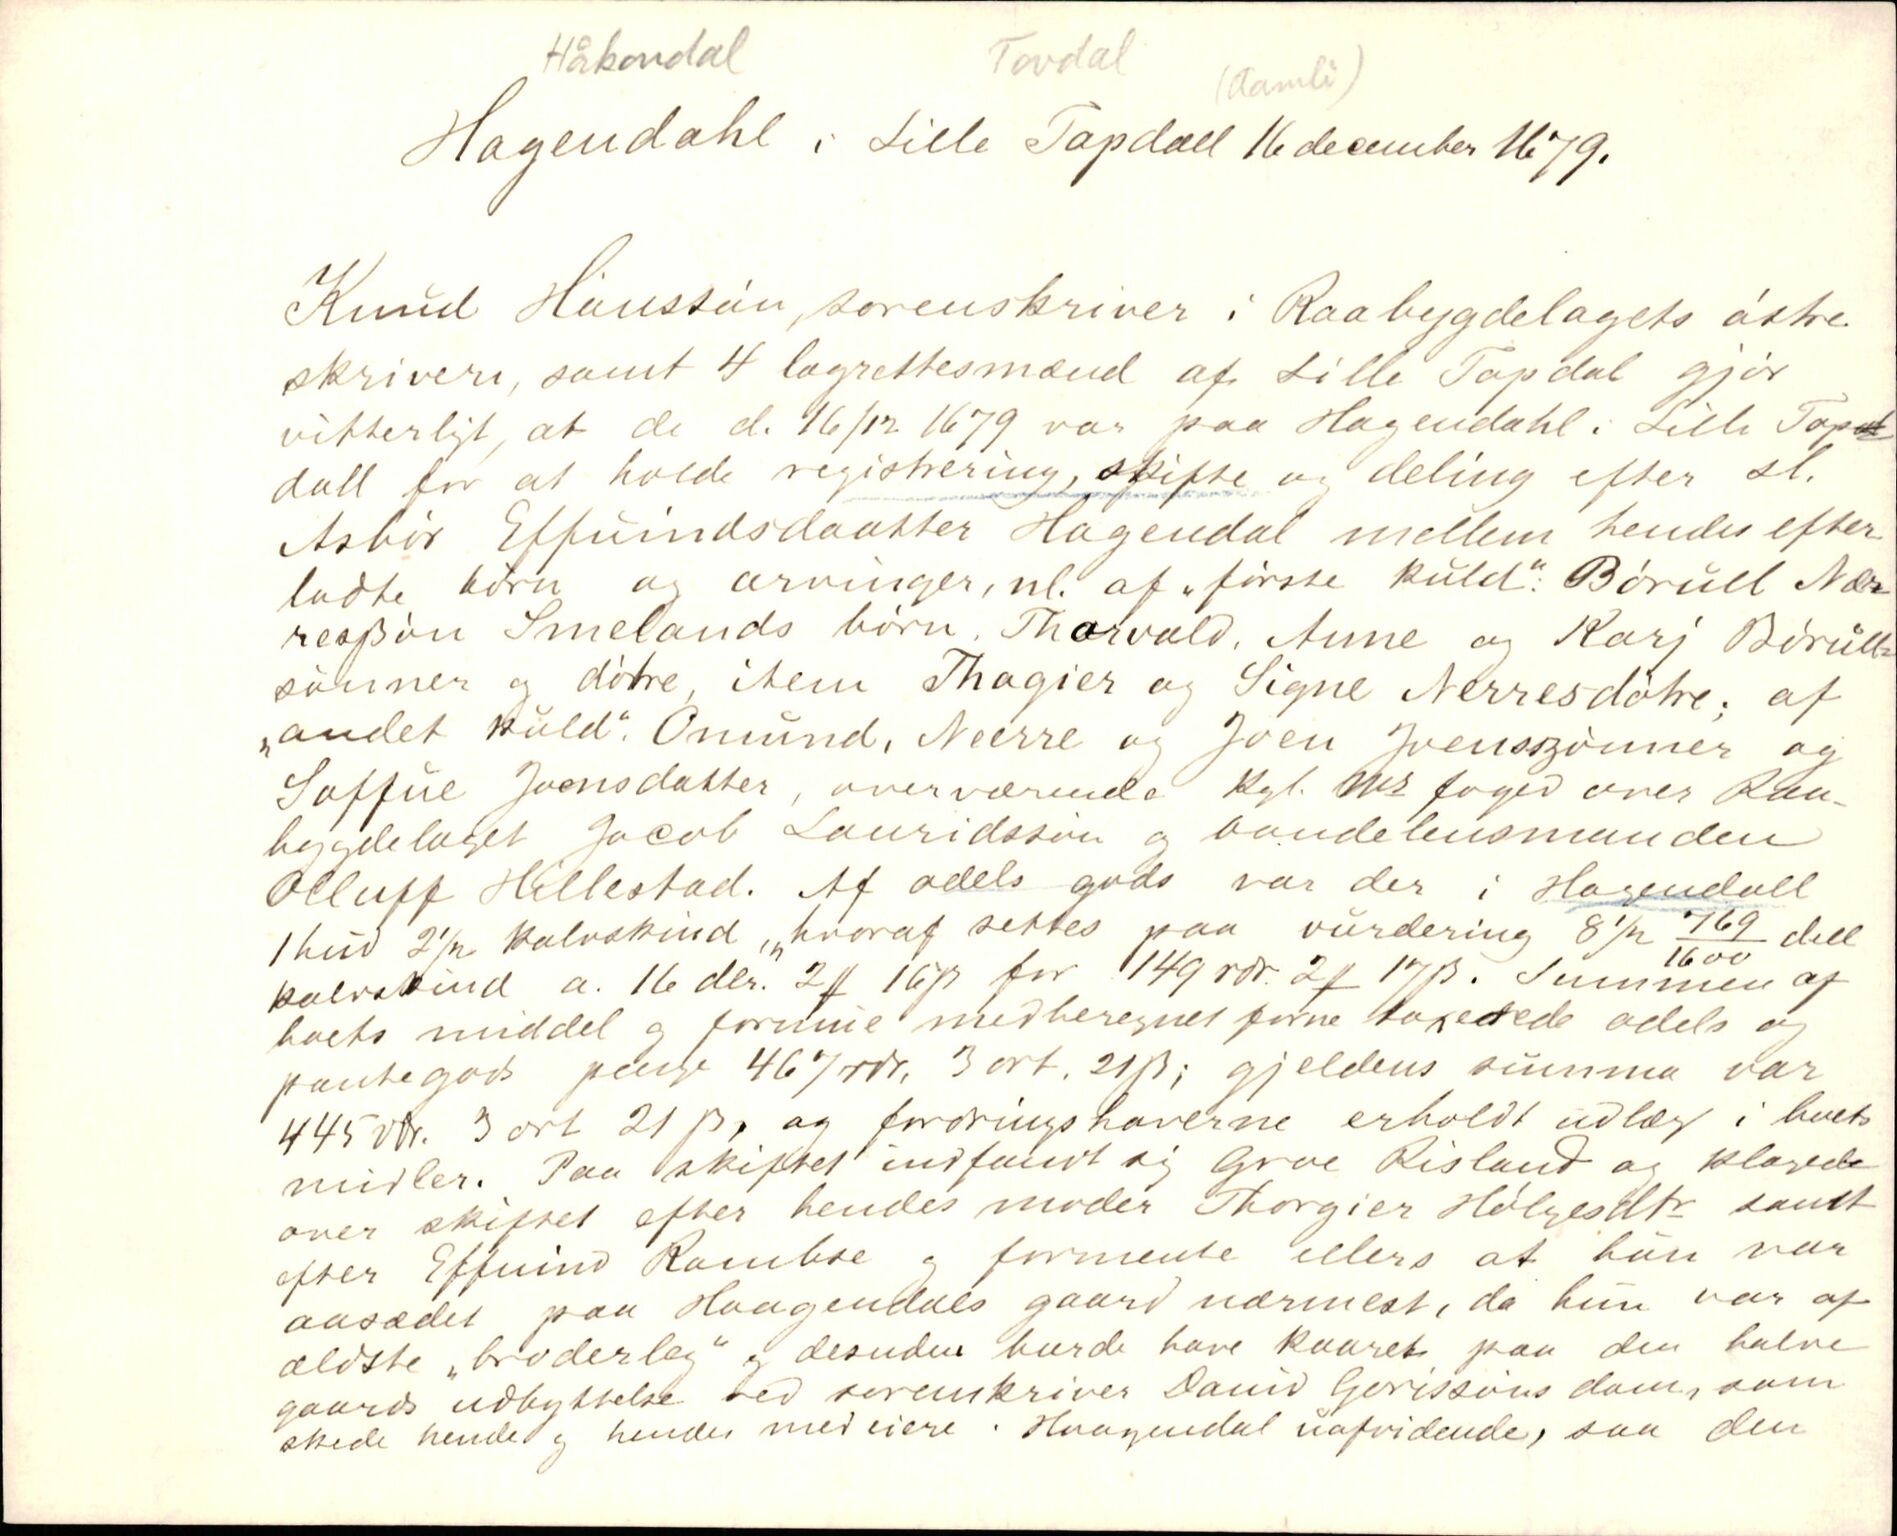 Håkondal Tovdal (Åamli)
Hagendahl i Lille Tapdall 16 december 1679.
Knud Hanssøn, sorenskriver i Raabygdelagets østre
skriveri, samt 4 lagrettesmænd af Lille Tapdal gjør
vitterligt, at de d. 16/12 1679 var paa Hagendahl i Lille Tap
dall for at holde registrering, skifte og deling efter sl.
Asbør Effuindsdaatter Hagendal mellem hendes efter
ladte børn og arvinger, nl. af „første kuld“: Børull Nær
resßøn Smelands børn, Thorvald, Anne og Karj Børulls
sønner og døtre, item Thagier og Signe Nerresdøtre; af
„andet kuld“. Omund, Neerre og Joen Joensszønner og
Saffue Joensdatter, overværende kgl. Ms foged over Raa-
bygdelaget Jacob Lauridssøn og bondelensmanden
Olluff Hillestad. Af odels gods var der i Hagendall
1 hud 2 1/2 kalvskind, „hvoraf settes paa vurdering 8 1/2 769/1600 dell
kalvskind a. 16 dlr. 2 ff 16 β for 149 rdr. 2 ff 17 β. Summen af
boets middel og formue medberegnet forne taxerede odels og
pantegods penge 467 rdr. 3 ort. 21 β; gjeldens summa var
445 rdr. 3 ort 21 β, og fordringshaverne erholdt udlæg i boets
midler. Paa skiftet indfandt sig Groe Risland og klagede
over skiftet efter hendes moder Thorgier Hølgesdtr samt
efter Effuind Rambse og formente ellers at hun var
aasædet paa Haagendals gaard nærmest, da hun var af
ældste „broderleg“ og desuden burde have kaaret paa den halve
gaards udbyttelse ved sorenskriver David Gorissøns dom, som
skede hende og hendes medeiere i Haagendal uafvidende, saa den